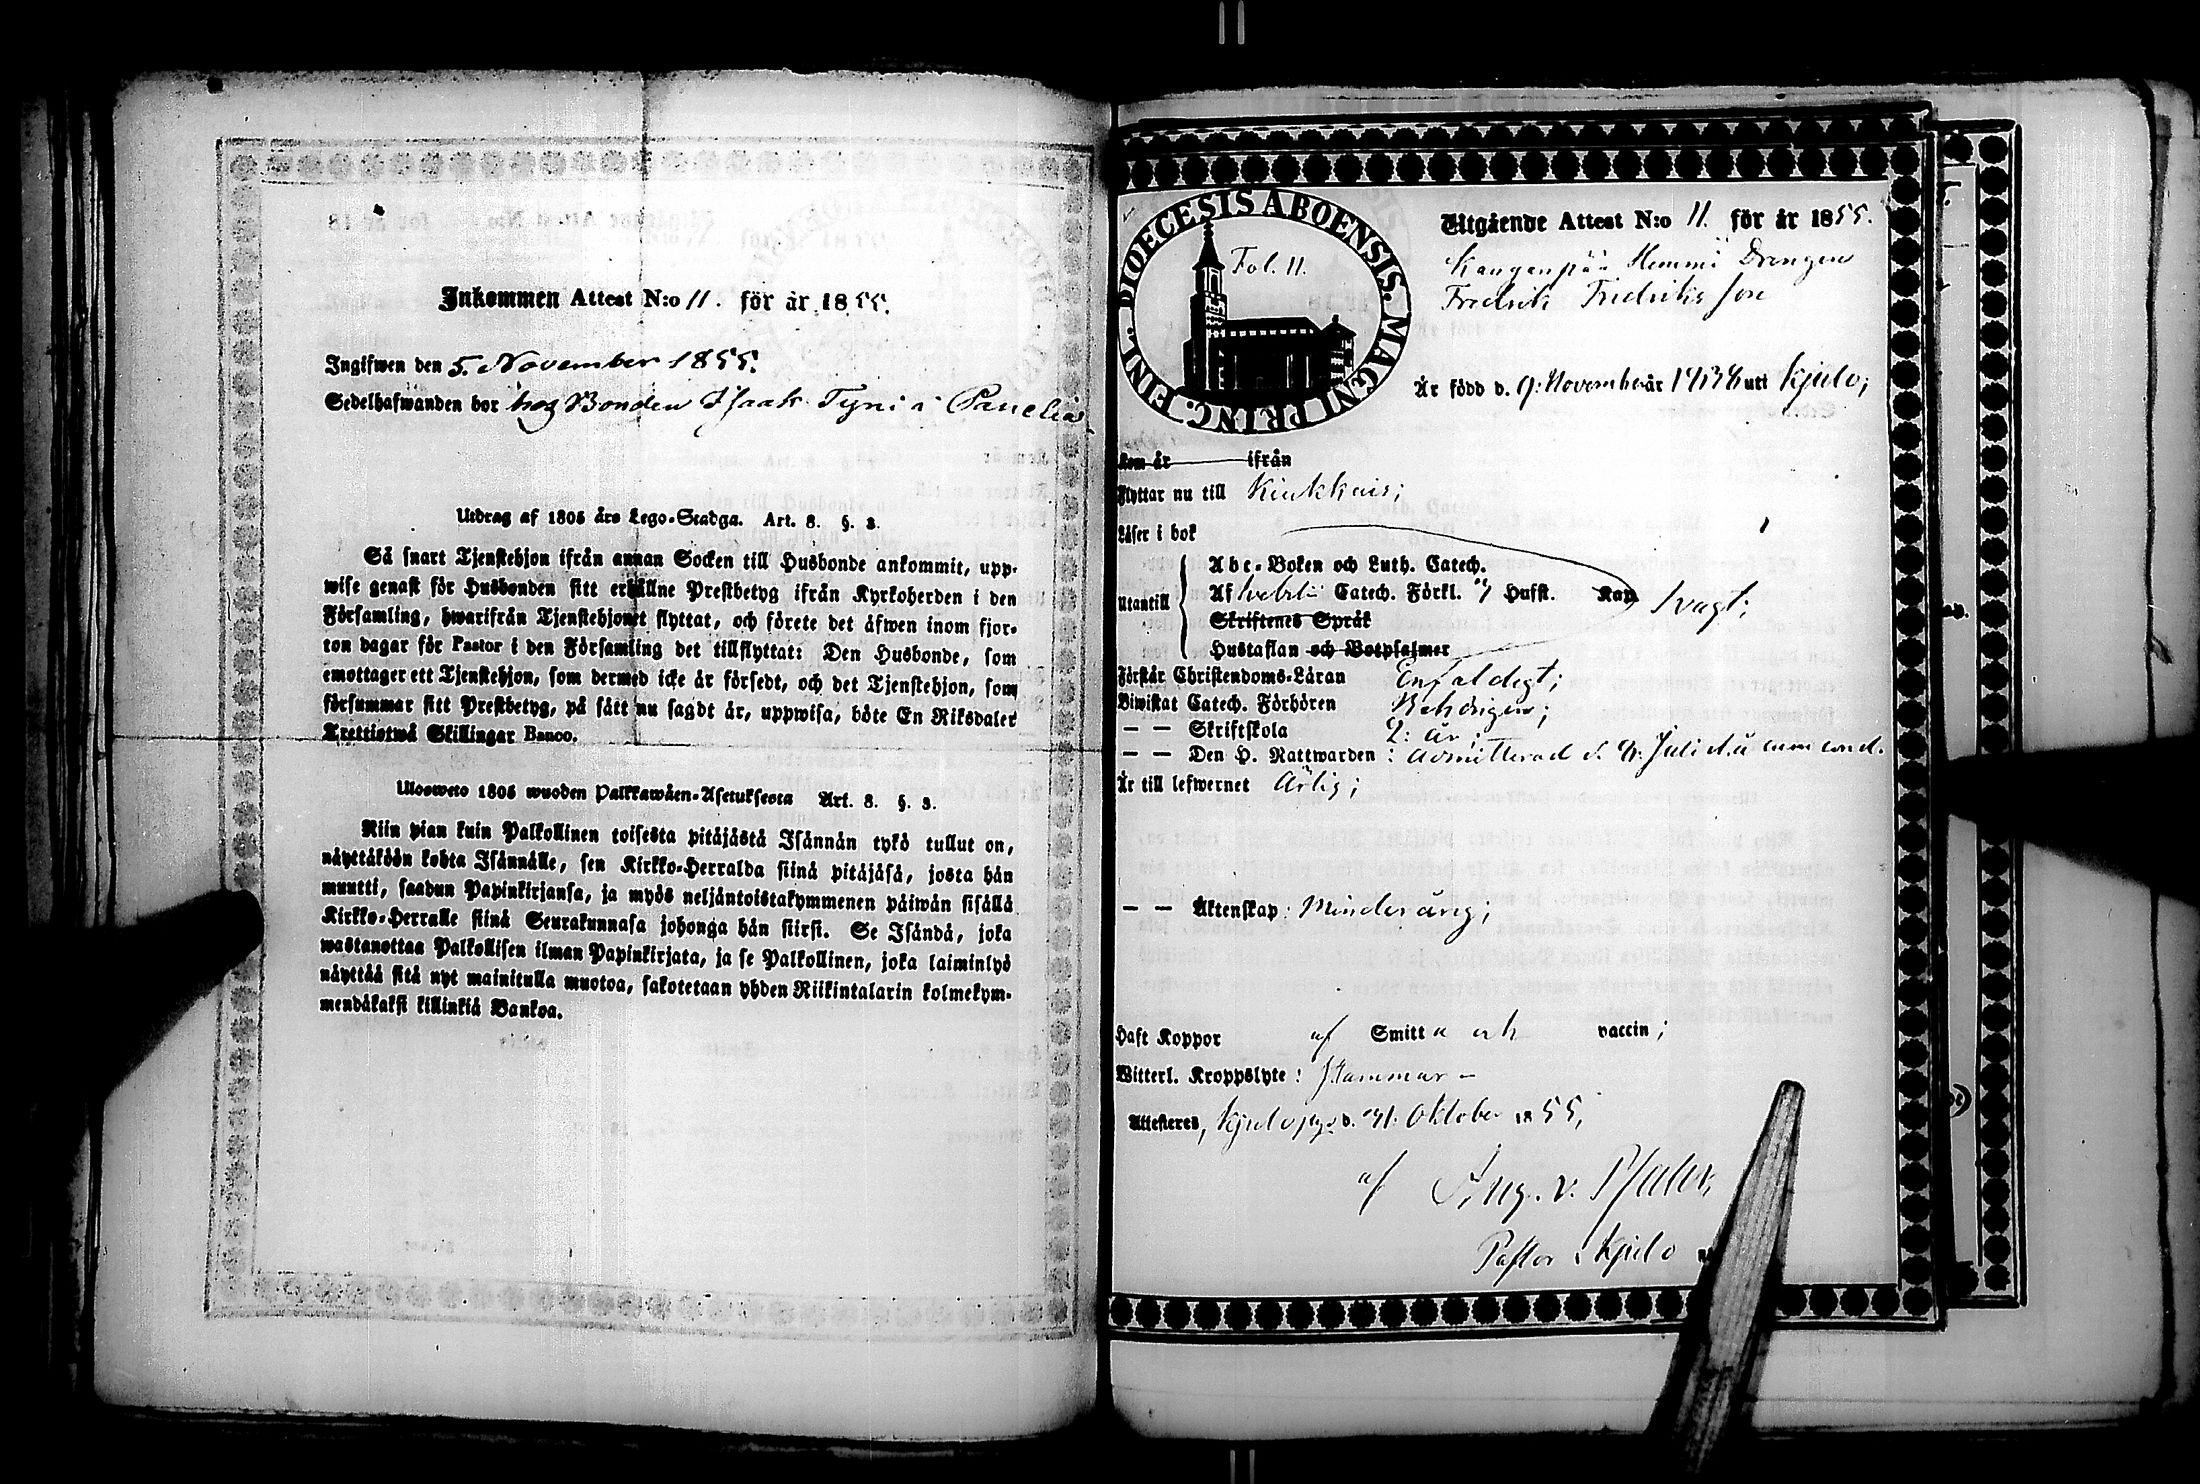 Inkommen Attest N:o 11. för år 1855.
Ingifwen den 5. November 1855.
Sedelhafwanden bor hos Bonden Isaak Tyni i Panelia
Utdrag af 1805 års Lego-Stadga. Art. 8. §. 3.
Så snart Tjenstehjon ifrån annan Socken till Husbonde ankommit, upp-
wise genast för Husbonden sitt erhållne Prestbetyg ifrån Kyrkoherden i den
Församling, hwarifrån Tjenstehjonet flyttat, och förete det äfwen inom fjor-
ton dagar för Pastor i den Församling det tillflyttat: Den Husbonde, som
emottager ett Tjenstehjon, som dermed icke är försedt, och det Tjenstehjon, som
försummar sitt Prestbetyg, på sätt nu sagdt är, uppwisa, böte En Riksdaler
Trettiotwå Skillingar Banco.
Ulosweto 1805 wuoden Palkkawäen-Asetuksesta Art. 8. §. 3.
Niin pian kuin Palkollinen toisesta pitäjästä Isännän tykö tullut on,
näyttäköön kohta Isännälle, sen Kirkko-Herralda siinä pitäjäsä, josta hän
muutti, saadun Papinkirjansa, ja myös neljäntoistakymmenen päiwän sisällä
Kirkko-Herralle siinä Seurakunnasa johonga hän siirsi. Se Isändä, joka
wastanottaa Palkollisen ilman Papinkirjata, ja se Palkollinen, joka laiminlyö
näyttää sitä nyt mainitulla muotoa, sakotetaan yhden Riikintalarin kolmekym-
mendäkaksi killinkiä Bankoa.
DIOECESIS ABOENSIS. MAGNI PRINC. FINL.
Fol. 11.
Utgående Attest N:o 11. för år 1855.
Kauganpää Hemmi Drengen
Fredrik Fredriksson
Är född d. 9: November år 1838 uti Kjulo;
Kom år ifrån
Flyttar nu till Kiukkais;
Läser i bok
Utantill
Abc-Boken och Luth. Catech.
Af Catech. Förkl. Hufst. Kan svagt;
Skriftenes Språk
Hustaflan och Botpsalmer
Förstår Christendoms-Läran Enfaldigt;
Biwistat Catech. Förhören Behörigen;
— — Skriftskola 2: år;
— — Den H. Nattwarden : Admitterad d. Juli d.å
Är till lefwernet Ärlig;
— — Äktenskap: Minderårig;
Haft Koppor af Smitta och vaccin;
Witterl. Kroppslyte: Stammar –
Attesteras, Kjulo d. 31. Oktober 1855,
af Aug. v. Pfaler,
Pastor i Kjulo